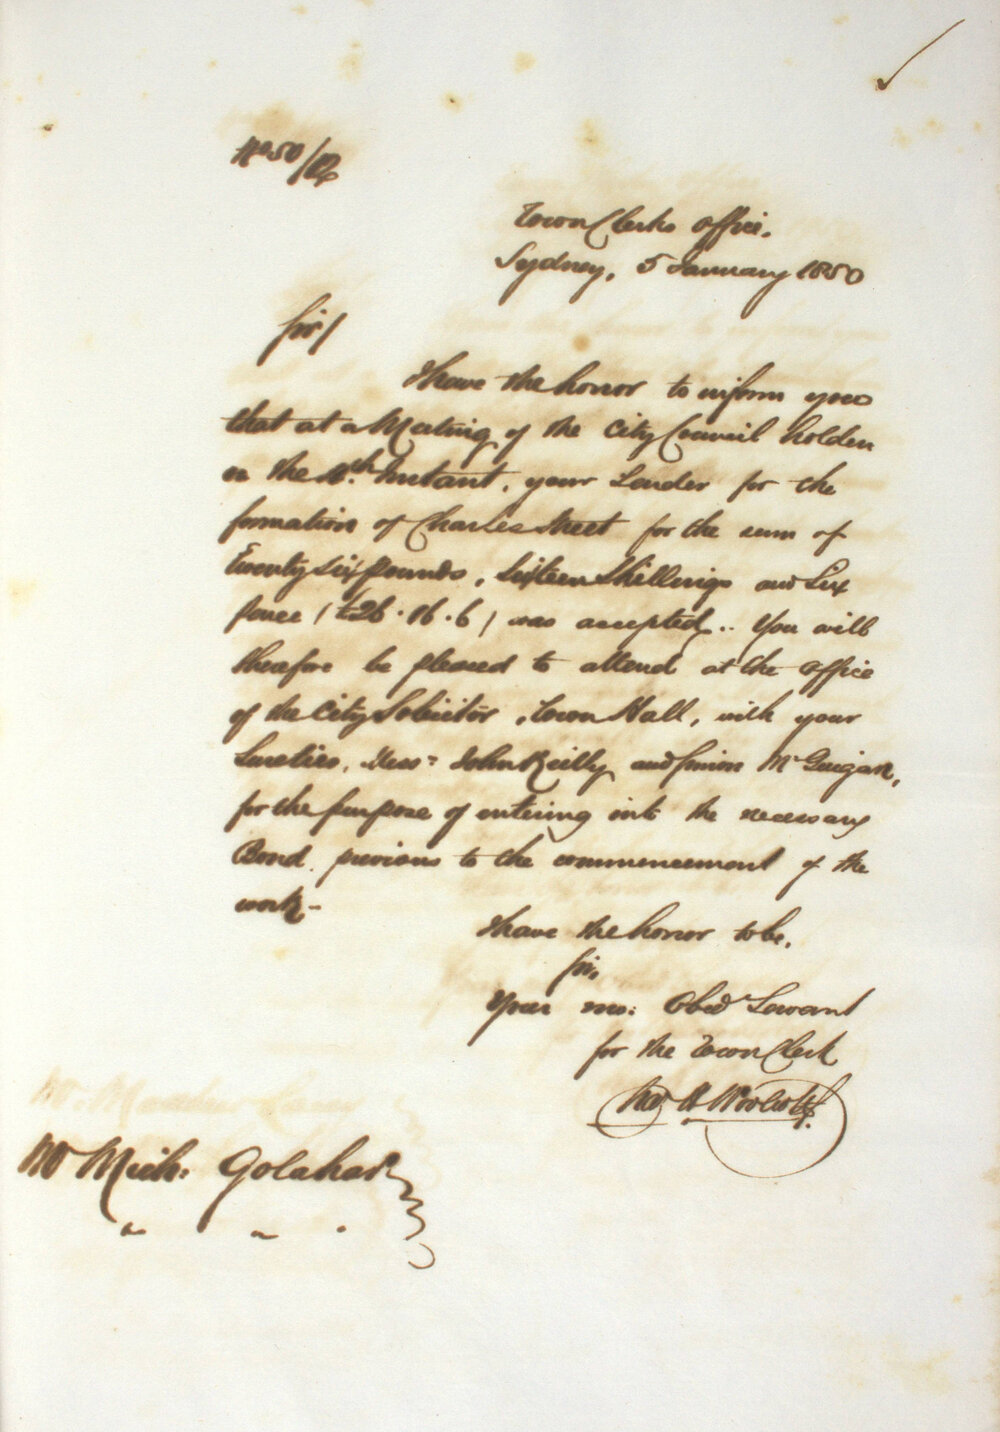 No 50/12
Town Clerks Office.
Sydney, 5 January 1850
Sir/
I have the honor to inform you
that at a Meeting of the City Council holden
on the 4th Instant, your Tender for the
formation of Charles Street for the sum of
Twenty Six Pounds, Sixteen Shillings and Six
pence (£26.16.6) was accepted. You will
therefore be pleased to attend at the office
of the City Solicitor, Town Hall, with your
Sureties, Mess= John Reilly and Simon McGuigan,
for the purpose of entering into the necessary
Bond, previous to the commencement of the
work -
I have the honor to be,
Sir,
Your mo: Obed Servant
for the Town Clerk
H Woolcott
Mr Mich: Golahar